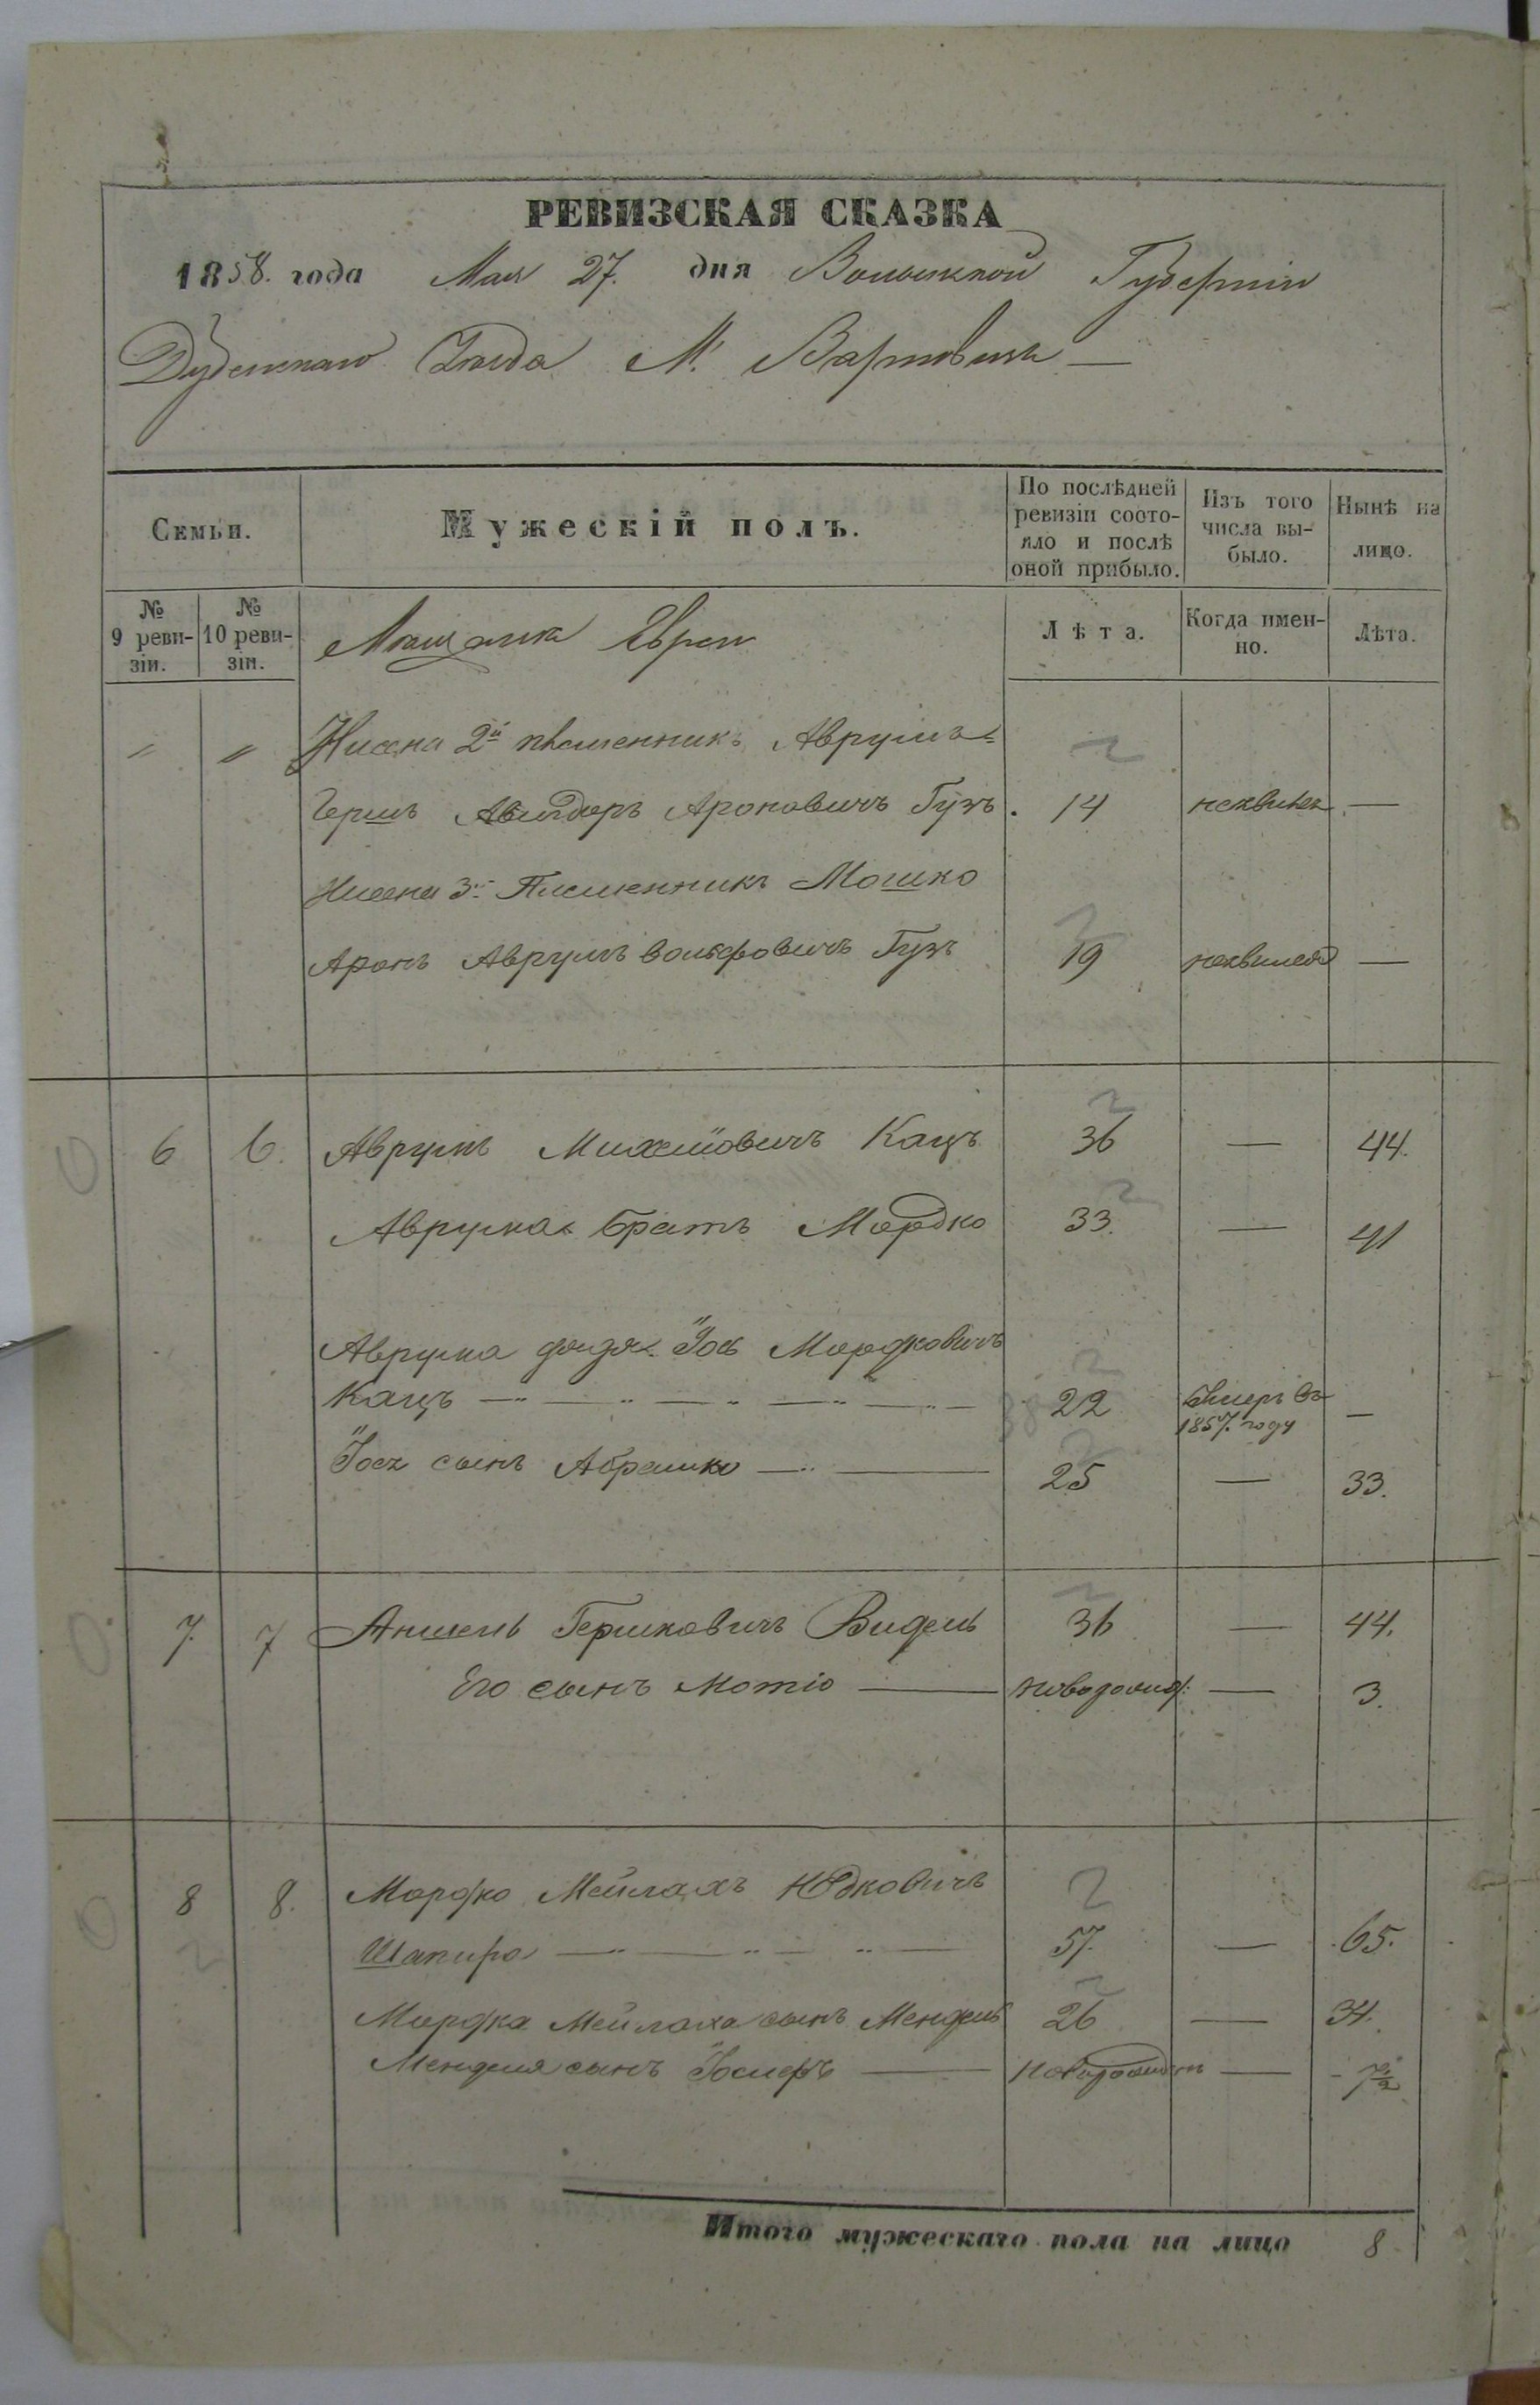 РЕВИЗСКАЯ СКАЗКА
1858. года Мая 27. дня Волынской Губерніи
Дубенскаго Уезда М. Варковичь —
Семьи.
Мужескій полъ.
По послѣдней ревизіи состо-
яло и послѣ
оной прибыло.
Изъ того числа вы-
было.
Нынѣ на лицо.
№ 9 реви-
зіи.
№ 10 реви-
зіи.
Мещане Евреи
Лѣта.
Когда имен-
но.
Лѣта.
〃 〃 Нисена 2й племенникъ Аврумъ=
Гершъ Авигдоръ Ароновичъ Гузъ. 14 —
Нисена 3й Племенникъ Мошко
Аронъ Аврумъ Вольфовичъ Гузъ 19 —
6 6. Аврумъ Михелiовичъ Кацъ 36 — 44.
Аврума братъ Мордко 33. — 41
Аврума дядя Іосъ Мордковичъ
Кацъ — 〃 — 〃 — 〃 — 〃 — 〃 — 22 Умеръ въ 1857. году —
Іося сынъ Абрашко — 〃 — 25 — 33.
7. 7 Аншель Гершковичъ Видель 36 — 44.
Его сынъ Мотіо — новорожд: — 3.
8 8. Мордко Мейлахъ Юдковичъ
Шапиро — 〃 — 〃 — 〃 — 57. — 65.
Мордка Мейлаха сынъ Мендель 26 — 34.
Менделя сынъ Іосифъ — новорожденъ — 7½
Итого мужескаго пола на лицо 8